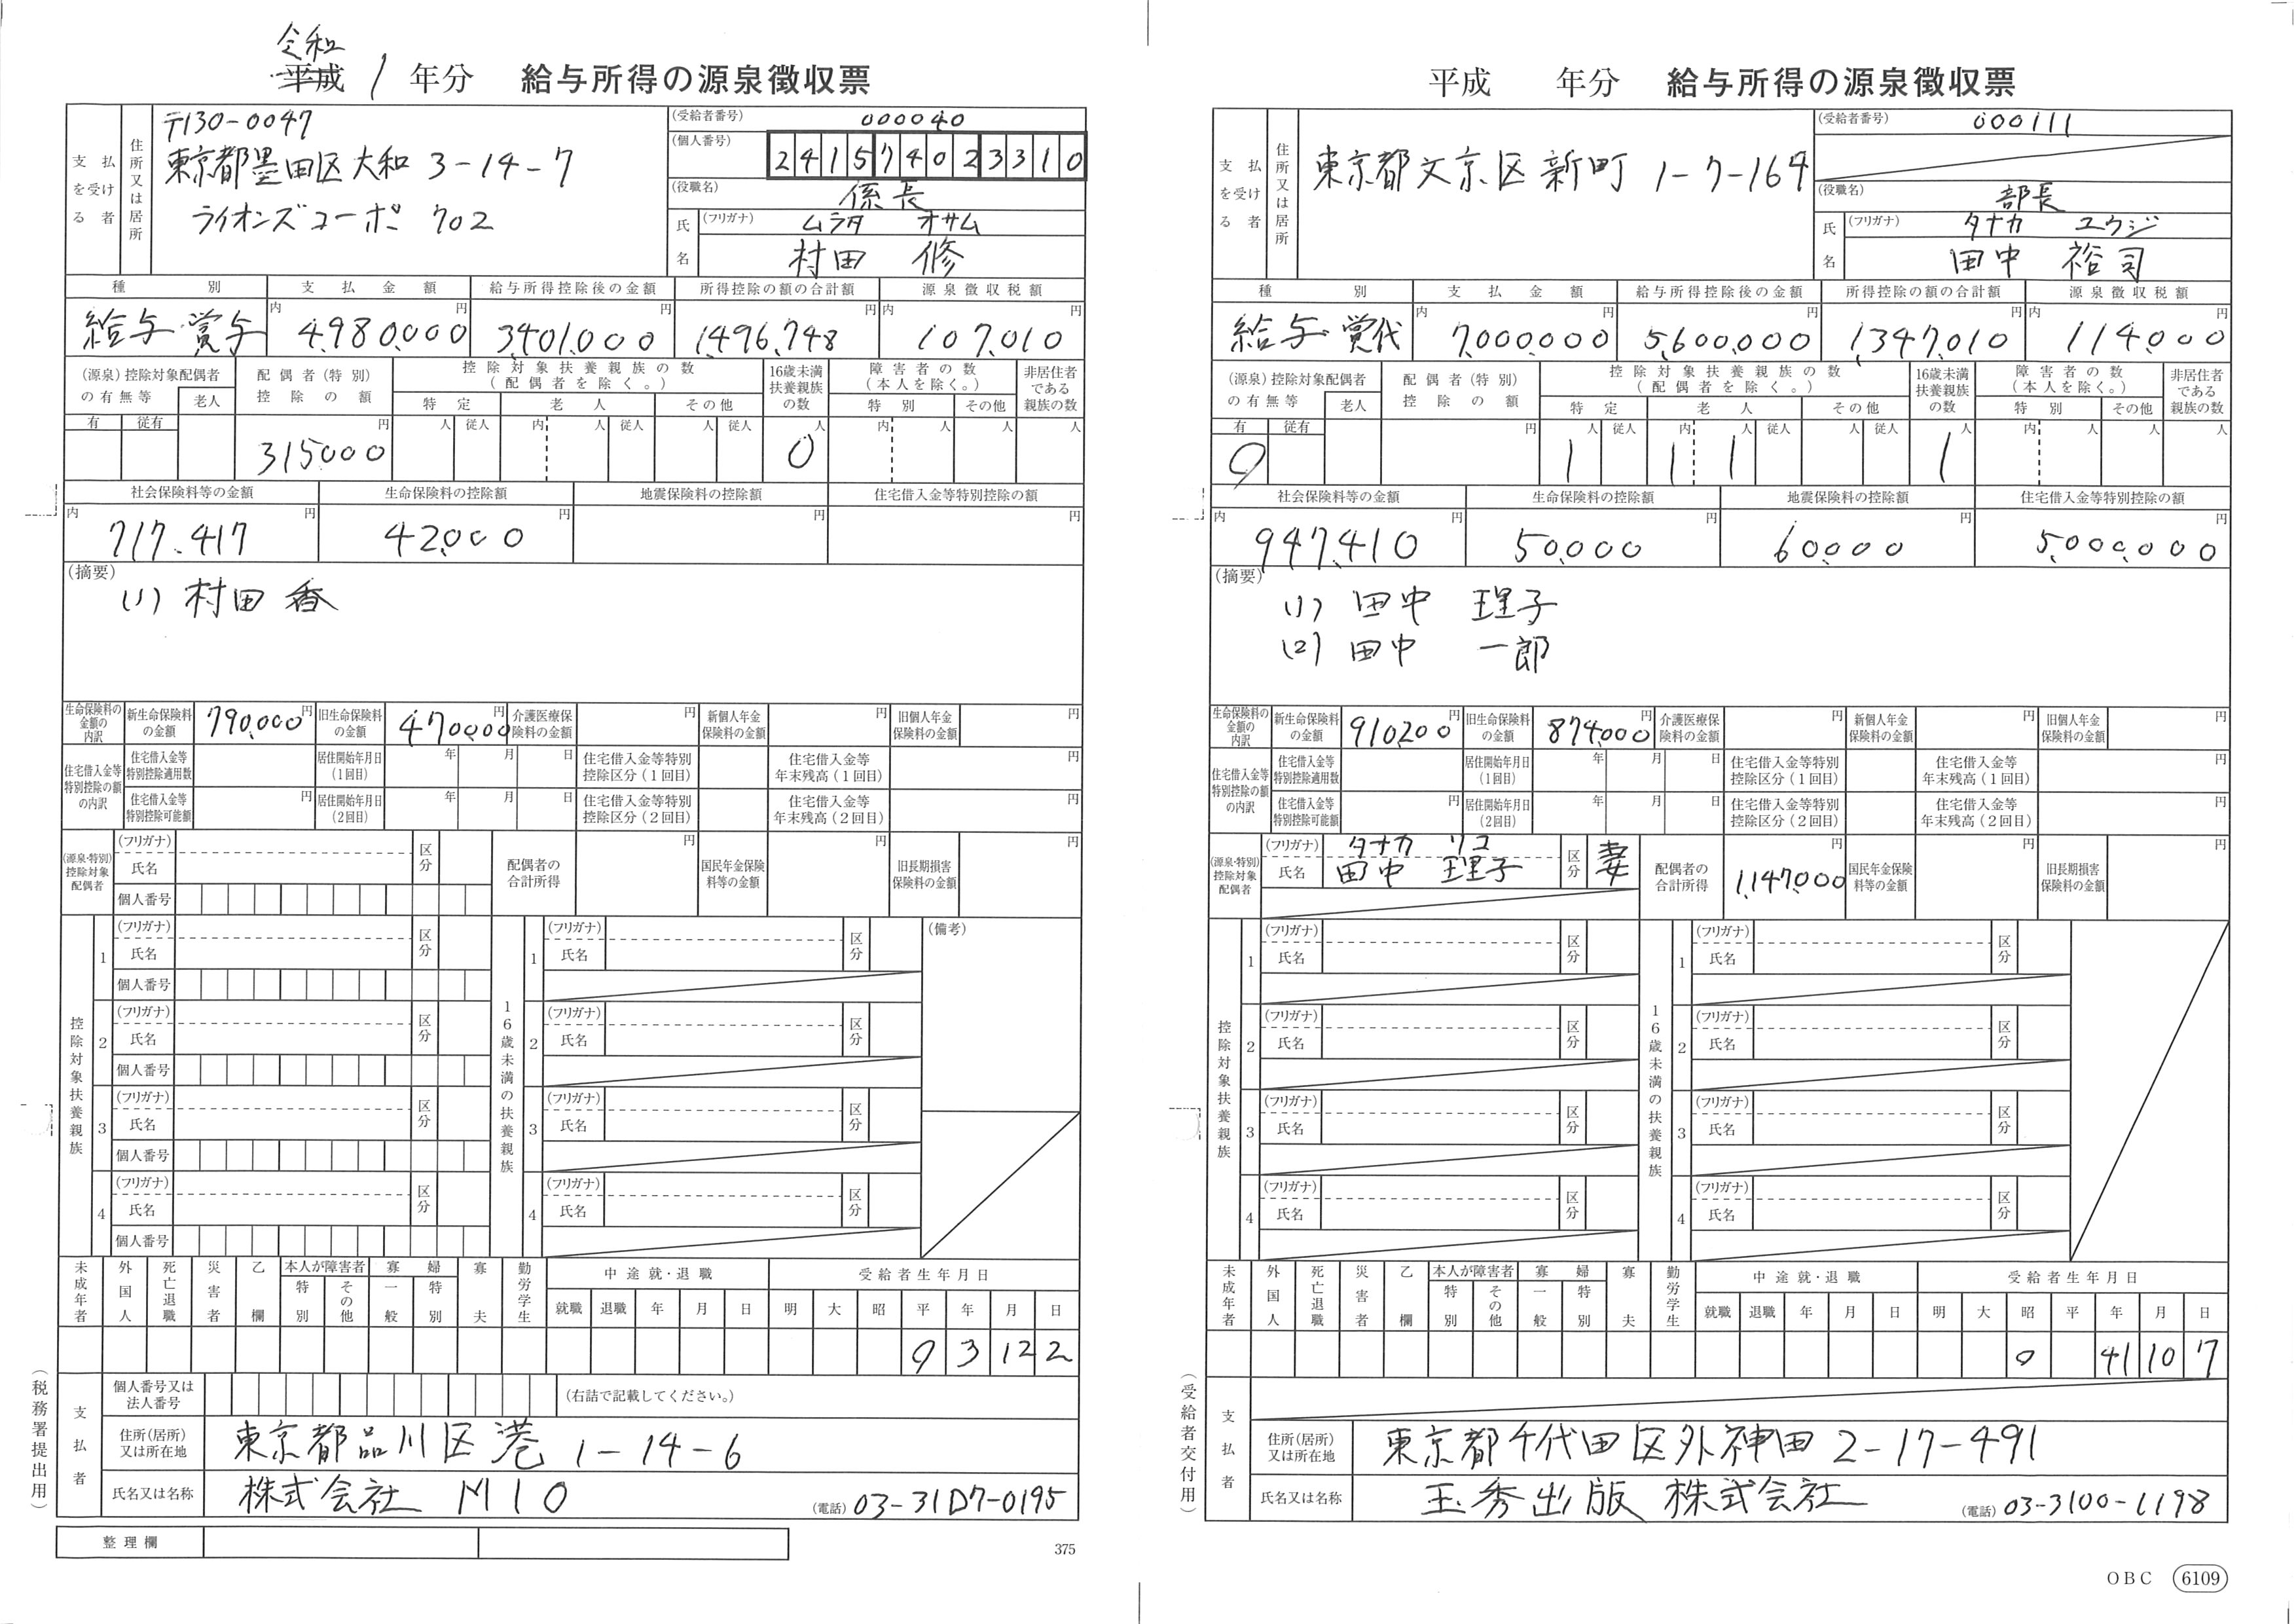 令和
平成 1 年分 給与所得の源泉徴収票
支払を受ける者
住所又は居所
〒130-0047
東京都墨田区大和 3-14-7
ライオンズコーポ 702
(受給者番号) 000040
(個人番号) 241574023310
(役職名) 係長
氏名
(フリガナ) ムラタ オサム
村田 修
種別 支払金額 給与所得控除後の金額 所得控除の額の合計額 源泉徴収税額
給与・賞与 内 4,980,000 円 3,401,000 円 1,496,748 円 内 107,010 円
(源泉)控除対象配偶者の有無等 老人 配偶者(特別)控除の額 控除対象扶養親族の数(配偶者を除く。) 16歳未満扶養親族の数 障害者の数(本人を除く。) 非居住者である親族の数
特定 老人 その他 特別 その他
有 従有 円 人 従人 内 人 従人 人 従人 人 内 人 人 人
315000 0
社会保険料等の金額 生命保険料の控除額 地震保険料の控除額 住宅借入金等特別控除の額
内 717,417 円 42,000 円 円 円
(摘要)
(1) 村田 香
生命保険料の金額の内訳 新生命保険料の金額 790,000 円 旧生命保険料の金額 470,000 円 介護医療保険料の金額 円 新個人年金保険料の金額 円 旧個人年金保険料の金額 円
住宅借入金等特別控除の額の内訳
住宅借入金等特別控除適用数 居住開始年月日(1回目) 年 月 日 住宅借入金等特別控除区分(1回目) 住宅借入金等年末残高(1回目) 円
住宅借入金等特別控除可能額 円 居住開始年月日(2回目) 年 月 日 住宅借入金等特別控除区分(2回目) 住宅借入金等年末残高(2回目) 円
(源泉・特別)控除対象配偶者
(フリガナ)
氏名 区分
個人番号
配偶者の合計所得 円 国民年金保険料等の金額 円 旧長期損害保険料の金額 円
控除対象扶養親族
16歳未満の扶養親族
1 (フリガナ) 氏名 区分 個人番号 1 (フリガナ) 氏名 区分 (備考)
2 (フリガナ) 氏名 区分 個人番号 2 (フリガナ) 氏名 区分
3 (フリガナ) 氏名 区分 個人番号 3 (フリガナ) 氏名 区分
4 (フリガナ) 氏名 区分 個人番号 4 (フリガナ) 氏名 区分
未成年者 外国人 死亡退職 災害者 乙欄 本人が障害者 特別 その他 寡婦 一般 特別 寡夫 勤労学生 中途就・退職 受給者生年月日
就職 退職 年 月 日 明 大 昭 平 年 月 日
0 3 12 2
支払者
個人番号又は法人番号 (右詰で記載してください。)
住所(居所)又は所在地 東京都品川区港 1-14-6
氏名又は名称 株式会社 M10 (電話) 03-31D7-0195
整理欄
375
(税務署提出用)
平成 年分 給与所得の源泉徴収票
支払を受ける者
住所又は居所
東京都文京区新町 1-7-164
(受給者番号) 000111
(役職名) 部長
氏名
(フリガナ) タナカ ユウジ
田中 裕司
種別 支払金額 給与所得控除後の金額 所得控除の額の合計額 源泉徴収税額
給与・賞代 内 7,000,000 円 5,600,000 円 1,347,010 円 内 114,000 円
(源泉)控除対象配偶者の有無等 老人 配偶者(特別)控除の額 控除対象扶養親族の数(配偶者を除く。) 16歳未満扶養親族の数 障害者の数(本人を除く。) 非居住者である親族の数
特定 老人 その他 特別 その他
有 従有 円 人 従人 内 人 従人 人 従人 人 内 人 人 人
0 1 1 1 1
社会保険料等の金額 生命保険料の控除額 地震保険料の控除額 住宅借入金等特別控除の額
内 947,410 円 50,000 円 60,000 円 5,000,000 円
(摘要)
(1) 田中 理子
(2) 田中 一郎
生命保険料の金額の内訳 新生命保険料の金額 910200 円 旧生命保険料の金額 874,000 円 介護医療保険料の金額 円 新個人年金保険料の金額 円 旧個人年金保険料の金額 円
住宅借入金等特別控除の額の内訳
住宅借入金等特別控除適用数 居住開始年月日(1回目) 年 月 日 住宅借入金等特別控除区分(1回目) 住宅借入金等年末残高(1回目) 円
住宅借入金等特別控除可能額 円 居住開始年月日(2回目) 年 月 日 住宅借入金等特別控除区分(2回目) 住宅借入金等年末残高(2回目) 円
(源泉・特別)控除対象配偶者
(フリガナ) タナカ リコ
氏名 田中 理子 区分 妻
配偶者の合計所得 1,147,000 円 国民年金保険料等の金額 円 旧長期損害保険料の金額 円
控除対象扶養親族
16歳未満の扶養親族
1 (フリガナ) 氏名 区分 1 (フリガナ) 氏名 区分
2 (フリガナ) 氏名 区分 2 (フリガナ) 氏名 区分
3 (フリガナ) 氏名 区分 3 (フリガナ) 氏名 区分
4 (フリガナ) 氏名 区分 4 (フリガナ) 氏名 区分
未成年者 外国人 死亡退職 災害者 乙欄 本人が障害者 特別 その他 寡婦 一般 特別 寡夫 勤労学生 中途就・退職 受給者生年月日
就職 退職 年 月 日 明 大 昭 平 年 月 日
0 41 10 7
支払者
住所(居所)又は所在地 東京都千代田区外神田 2-17-491
氏名又は名称 玉秀出版 株式会社 (電話) 03-3100-1198
(受給者交付用)
OBC 6109